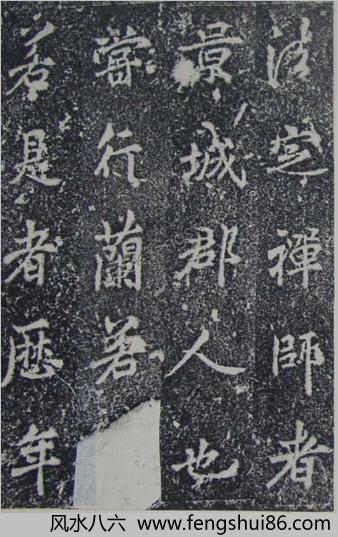 法定禪師者
景城郡人也
嘗行蘭若
若是者歷年
风水八六 www.fengshui86.com